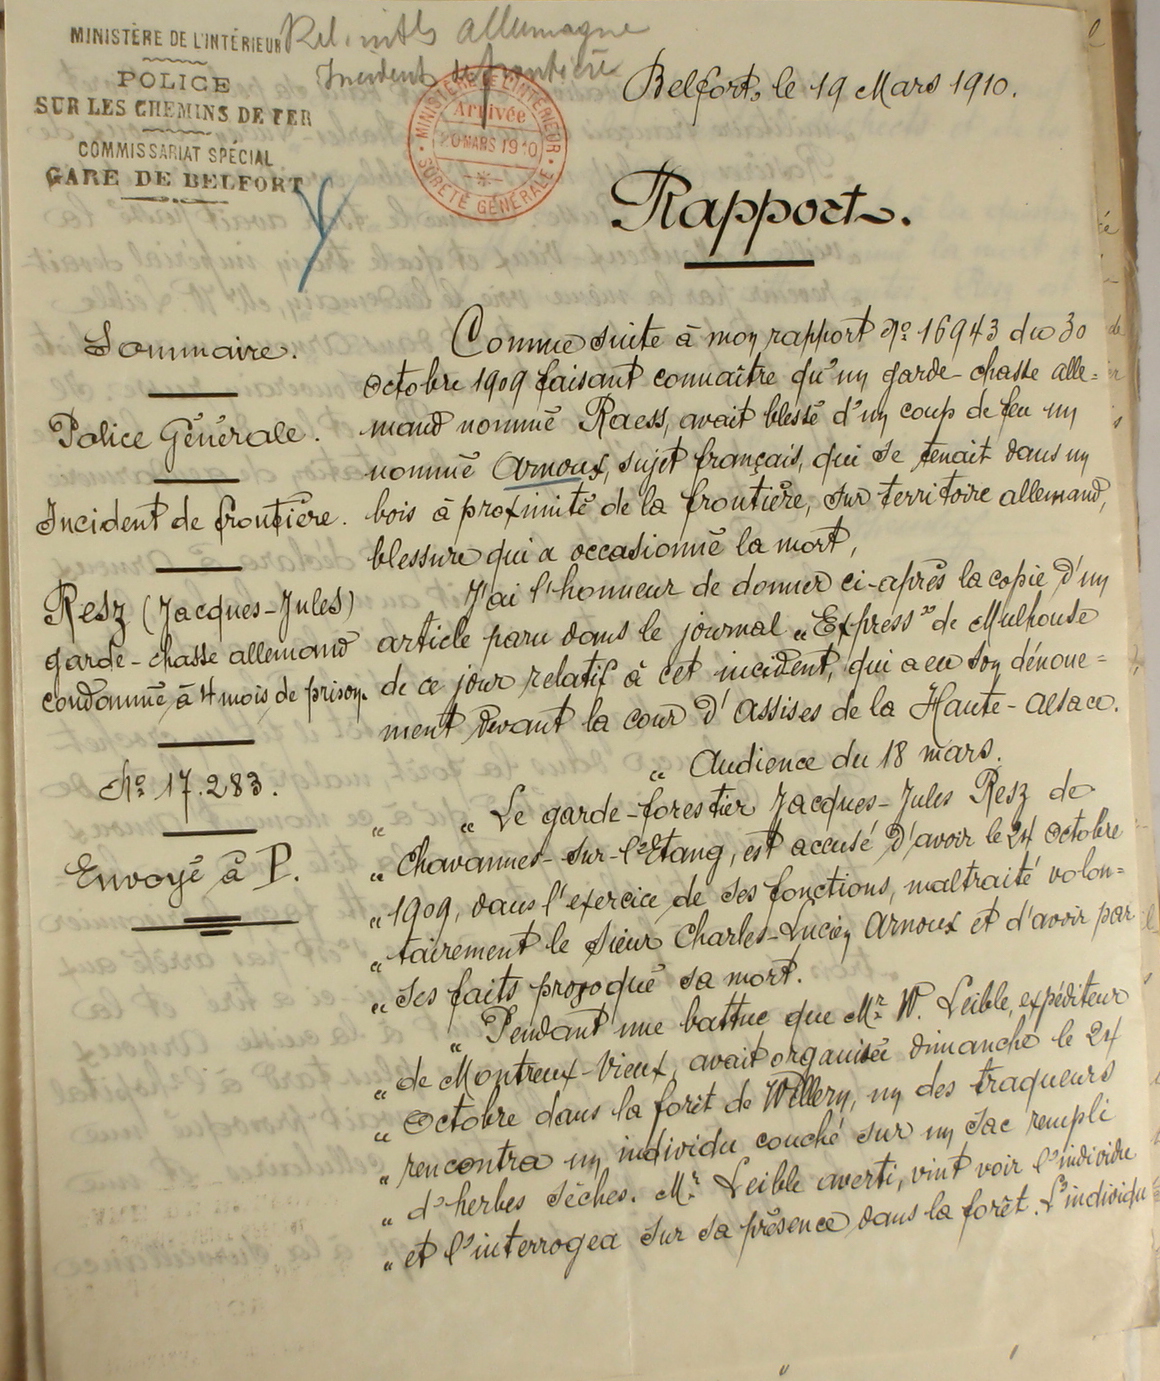 MINISTÈRE DE L'INTÉRIEUR
POLICE
SUR LES CHEMINS DE FER
COMMISSARIAT SPÉCIAL
GARE DE BELFORT
Rel. intles allemagne
Incident de frontière
MINISTÈRE DE L'INTÉRIEUR
Arrivée
20 MARS 1910
SURETÉ GÉNÉRALE
Belfort, le 19 Mars 1910.
Rapport.
Sommaire.
Police Générale.
Incident de frontière.
Resz (Jacques-Jules)
garde-chasse allemand
condamné à 4 mois de prison.
No 17.283.
Envoyé à P.
Comme suite à mon rapport No 16943 du 30
Octobre 1909 faisant connaître qu'un garde-chasse alle=
mand nommé Raess, avait blessé d'un coup de feu un
nommé Arnoux, sujet français, qui se tenait dans un
bois à proximité de la frontière, sur territoire allemand,
blessure qui a occasionné la mort,
J'ai l'honneur de donner ci-après la copie d'un
article paru dans le journal „Express" de Mulhouse
de ce jour relatif à cet incident, qui a eu son dénoue=
ment devant la cour d'Assises de la Haute-Alsace.
„ Audience du 18 mars.
„ „ Le garde-forestier Jacques-Jules Resz de
„ Chavannes-sur-l'Etang, est accusé d'avoir le 24 Octobre
„ 1909, dans l'exercice de ses fonctions, maltraité volon=
„ tairement le sieur Charles-Lucien Arnoux et d'avoir par
„ ses faits provoqué sa mort.
„ Pendant une battue que Mr W. Leible, expéditeur
„ de Montreux-Vieux, avait organisée dimanche le 24
„ Octobre dans la forêt de Willern, un des traqueurs
„ rencontra un individu couché sur un sac rempli
„ d'herbes sèches. Mr Leible averti, vint voir l'individu
„ et l'interrogea sur sa présence dans la forêt. L'individu